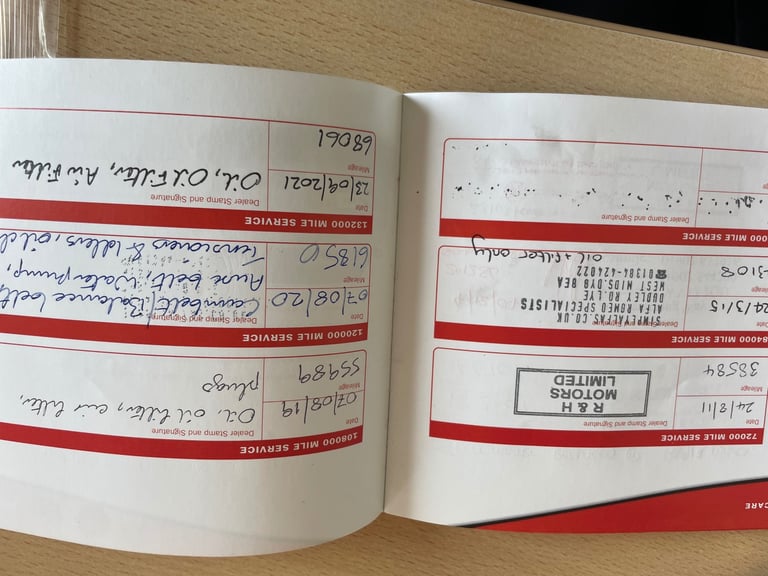 CARE
72000 MILE SERVICE
Date
Dealer Stamp and Signature
24/8/11
Mileage
38584
R & H
MOTORS
LIMITED
84000 MILE SERVICE
Date
Dealer Stamp and Signature
24/3/15
Mileage
3108
SIMPLYALFAS.CO.UK
ALFA ROMEO SPECIALISTS
DUDLEY RD LYE
WEST MIDS.DY9 8EA
☎01384-424022
oil + filter only
000 MILE SERVICE
Dealer Stamp and Signature
108000 MILE SERVICE
Date
Dealer Stamp and Signature
07/08/19
Oil, oil filter, air filter,
Mileage
plugs
55989
120000 MILE SERVICE
Date
Dealer Stamp and Signature
07/08/20
Cambelt, Balance belt
Mileage
Auxe belt, Water pump,
61850
Tensioners & Idlers, oil
132000 MILE SERVICE
Date
Dealer Stamp and Signature
23/09/2021
Oil, Oil Filter, Air Filter
Mileage
68061